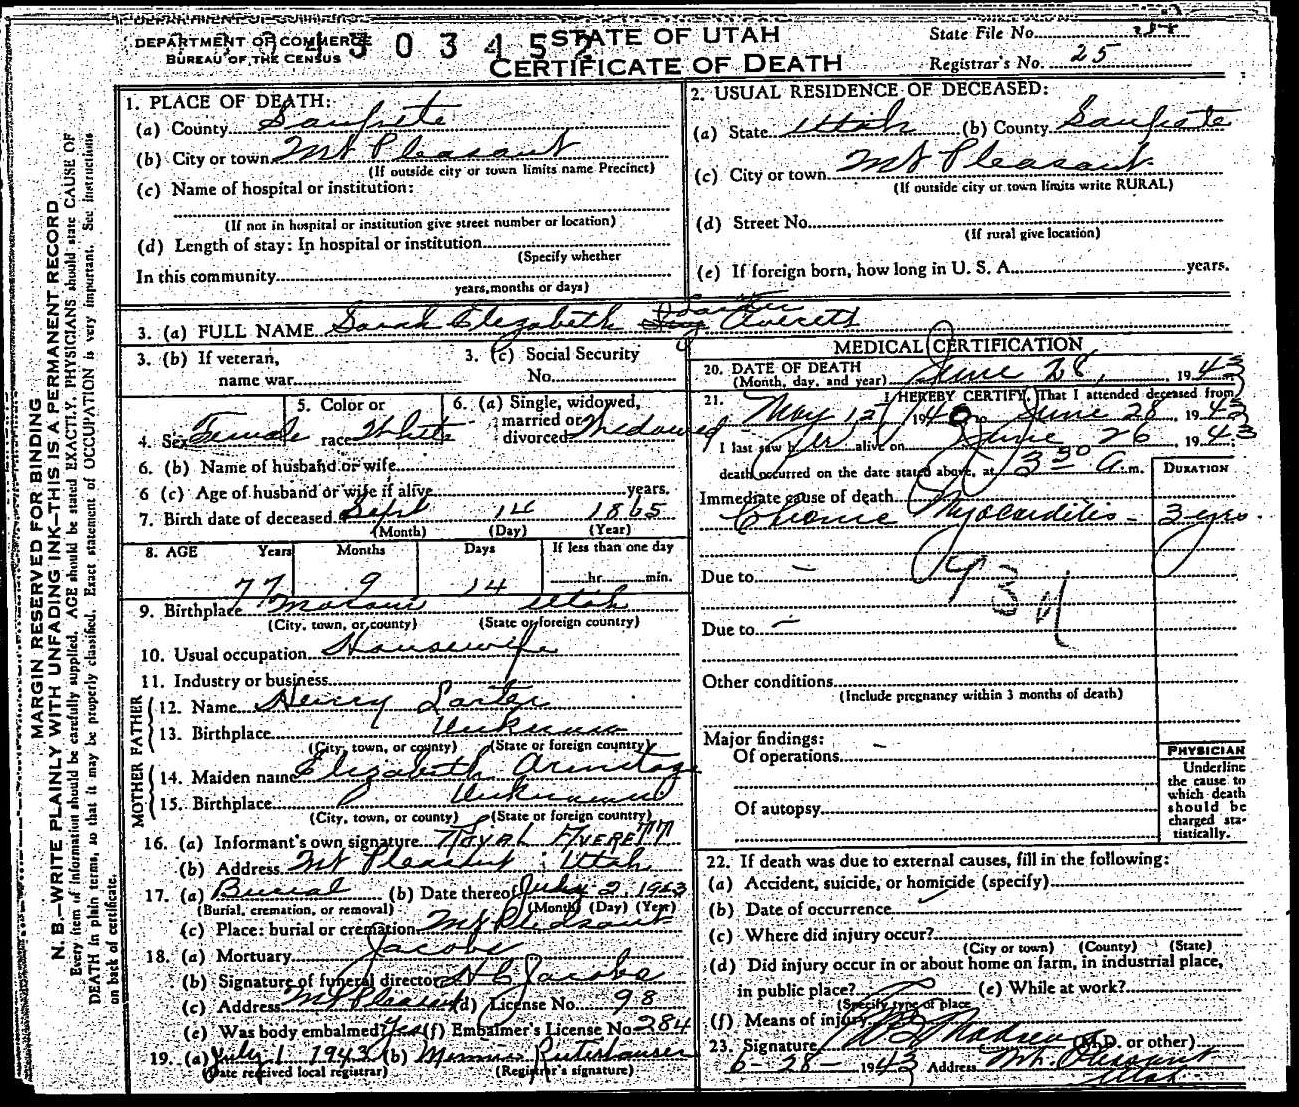 DEPARTMENT OF COMMERCE
BUREAU OF THE CENSUS
STATE OF UTAH
CERTIFICATE OF DEATH
State File No.
Registrar's No. 25
MARGIN RESERVED FOR BINDING
N. B.—WRITE PLAINLY WITH UNFADING INK—THIS IS A PERMANENT RECORD
Every item of information should be carefully supplied. AGE should be stated EXACTLY. PHYSICIANS should state CAUSE OF
DEATH in plain terms, so that it may be properly classified. Exact statement of OCCUPATION is very important. See instructions
on back of certificate.
1. PLACE OF DEATH:
(a) County Sanpete
(b) City or town Mt Pleasant
(If outside city or town limits name Precinct)
(c) Name of hospital or institution:
(If not in hospital or institution give street number or location)
(d) Length of stay: In hospital or institution
(Specify whether
In this community
years, months or days)
2. USUAL RESIDENCE OF DECEASED:
(a) State Utah (b) County Sanpete
(c) City or town Mt Pleasant
(If outside city or town limits write RURAL)
(d) Street No.
(If rural give location)
(e) If foreign born, how long in U. S. A. years.
3. (a) FULL NAME Sarah Elizabeth Averett
3. (b) If veteran,
name war
3. (c) Social Security
No.
4. Sex Female
5. Color or
race White
6. (a) Single, widowed,
married or
divorced Widowed
6. (b) Name of husband or wife
6 (c) Age of husband or wife if alive years.
7. Birth date of deceased Sept 14 1865
(Month) (Day) (Year)
8. AGE Years Months Days If less than one day
77 9 14 hr. min.
9. Birthplace Moroni Utah
(City, town, or county) (State or foreign country)
10. Usual occupation Housewife
11. Industry or business
FATHER
12. Name Henry
13. Birthplace Unknown
(City, town, or county) (State or foreign country)
MOTHER
14. Maiden name Elizabeth Armitage
15. Birthplace Unknown
(City, town, or county) (State or foreign country)
16. (a) Informant's own signature Royal Averett
(b) Address Mt Pleasant, Utah
17. (a) Burial (b) Date thereof July 2, 1943
(Burial, cremation, or removal) (Month) (Day) (Year)
(c) Place: burial or cremation Mt Pleasant
18. (a) Mortuary Jacobs
(b) Signature of funeral director H C Jacobs
(c) Address Mt Pleasant (d) License No. 98
(e) Was body embalmed? Yes (f) Embalmer's License No. 284
19. (a) July 1 1943 (b)
(Date received local registrar) (Registrar's signature)
MEDICAL CERTIFICATION
20. DATE OF DEATH
(Month, day, and year) June 28, 1943
21. I HEREBY CERTIFY, That I attended deceased from
May 12, 1940 to June 28, 1943
I last saw her alive on June 26 1943
death occurred on the date stated above, at 3 30 a.m.
DURATION
Immediate cause of death
Chronic Myocarditis - 3 yrs.
Due to -
Due to -
Other conditions
(Include pregnancy within 3 months of death)
Major findings:
Of operations
Of autopsy
PHYSICIAN
Underline
the cause to
which death
should be
charged sta-
tistically.
22. If death was due to external causes, fill in the following:
(a) Accident, suicide, or homicide (specify)
(b) Date of occurrence
(c) Where did injury occur?
(City or town) (County) (State)
(d) Did injury occur in or about home on farm, in industrial place,
in public place? (e) While at work?
(Specify type of place
(f) Means of injury
23. Signature (M.D. or other)
6-28-1943 Address Mt. Pleasant
Utah